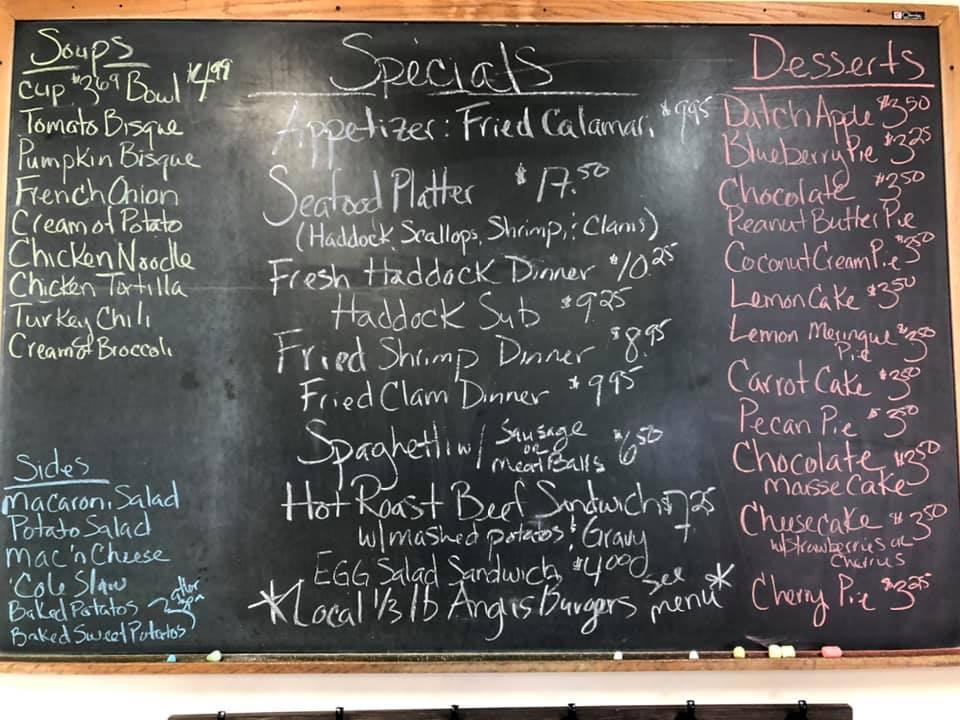 Soups
cup $3.69 Bowl $4.99
Tomato Bisque
Pumpkin Bisque
French Onion
Cream of Potato
Chicken Noodle
Chicken Tortilla
Turkey Chili
Cream of Broccoli
Sides
Macaroni Salad
Potato Salad
Mac 'n Cheese
Cole Slaw
Baked Potatos after
Baked Sweet Potatos
Specials
Appetizer: Fried Calamari $9.95
Seafood Platter $17.50
(Haddock, Scallops, Shrimp, & Clams)
Fresh Haddock Dinner $10.25
Haddock Sub $9.25
Fried Shrimp Dinner $8.95
Fried Clam Dinner $9.95
Spaghetti w/ Sausage or meatballs $6.50
Hot Roast Beef Sandwich $7.25
w/mashed potatos & Gravy
EGG Salad Sandwich $4.00
*Local 1/3 lb Angus Burgers see menu*
Desserts
Dutch Apple $3.50
Blueberry Pie $3.25
Chocolate $3.50
Peanut Butter Pie
Coconut Cream Pie $3.50
Lemon Cake $3.50
Lemon Meringue $3.50
Pie
Carrot Cake $3.50
Pecan Pie $3.50
Chocolate $3.50
Mousse Cake
Cheesecake $3.50
w/strawberries or
Cherries
Cherry Pie $3.25